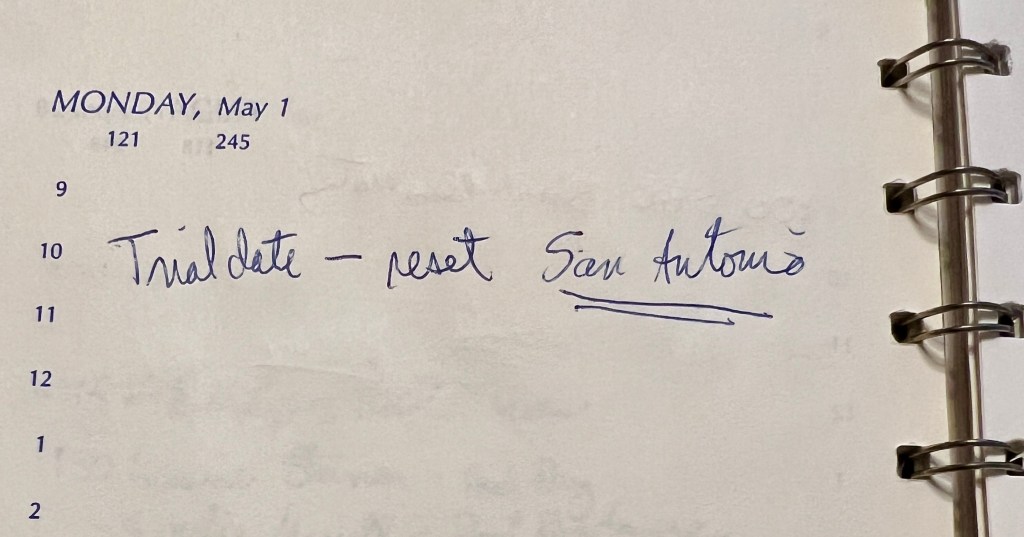 MONDAY, May 1
121 245
9
10 Trial date — reset San Antonio
11
12
1
2